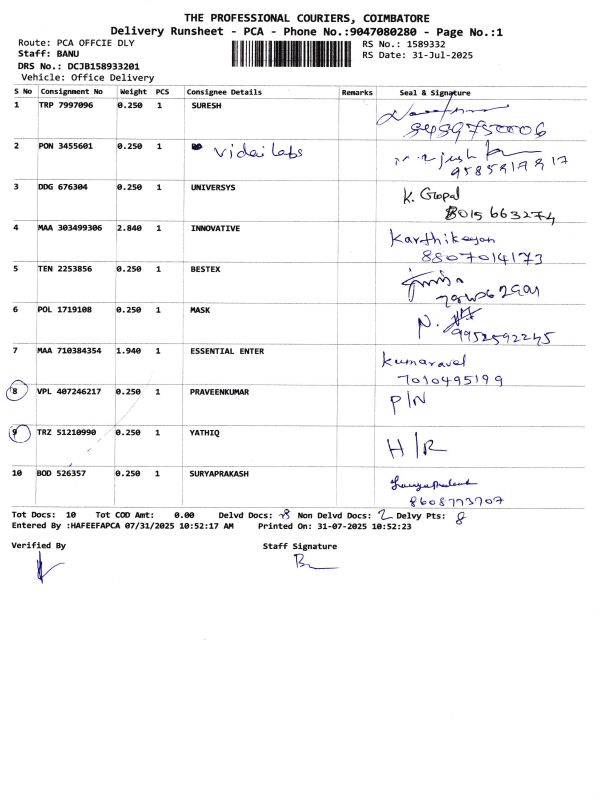 THE PROFESSIONAL COURIERS, COIMBATORE
Delivery Runsheet - PCA - Phone No.:9047080280 - Page No.:1
Route: PCA OFFCIE DLY
RS No.: 1589332
Staff: BANU
RS Date: 31-Jul-2025
DRS No.: DCJB158933201
Vehicle: Office Delivery
S No Consignment No Weight PCS Consignee Details Remarks Seal & Signature
1 TRP 7997096 0.250 1 SURESH
2 PON 3455601 0.250 1 Vidai labs
3 DDG 676304 0.250 1 UNIVERSYS K. Gopal
8015 663274
4 MAA 303499306 2.840 1 INNOVATIVE Karthikeyan
8807014173
5 TEN 2253856 0.250 1 BESTEX
6 POL 1719108 0.250 1 MASK N.
9952592245
7 MAA 710384354 1.940 1 ESSENTIAL ENTER Kumaravel
7010495199
8 VPL 407246217 0.250 1 PRAVEENKUMAR P/N
9 TRZ 51210990 0.250 1 YATHIQ H/R
10 BOD 526357 0.250 1 SURYAPRAKASH Suryaprakash
8608773707
Tot Docs: 10 Tot COD Amt: 0.00 Delvd Docs: 8 Non Delvd Docs: 2 Delvy Pts: 8
Entered By :HAFEEFAPCA 07/31/2025 10:52:17 AM Printed On: 31-07-2025 10:52:23
Verified By Staff Signature